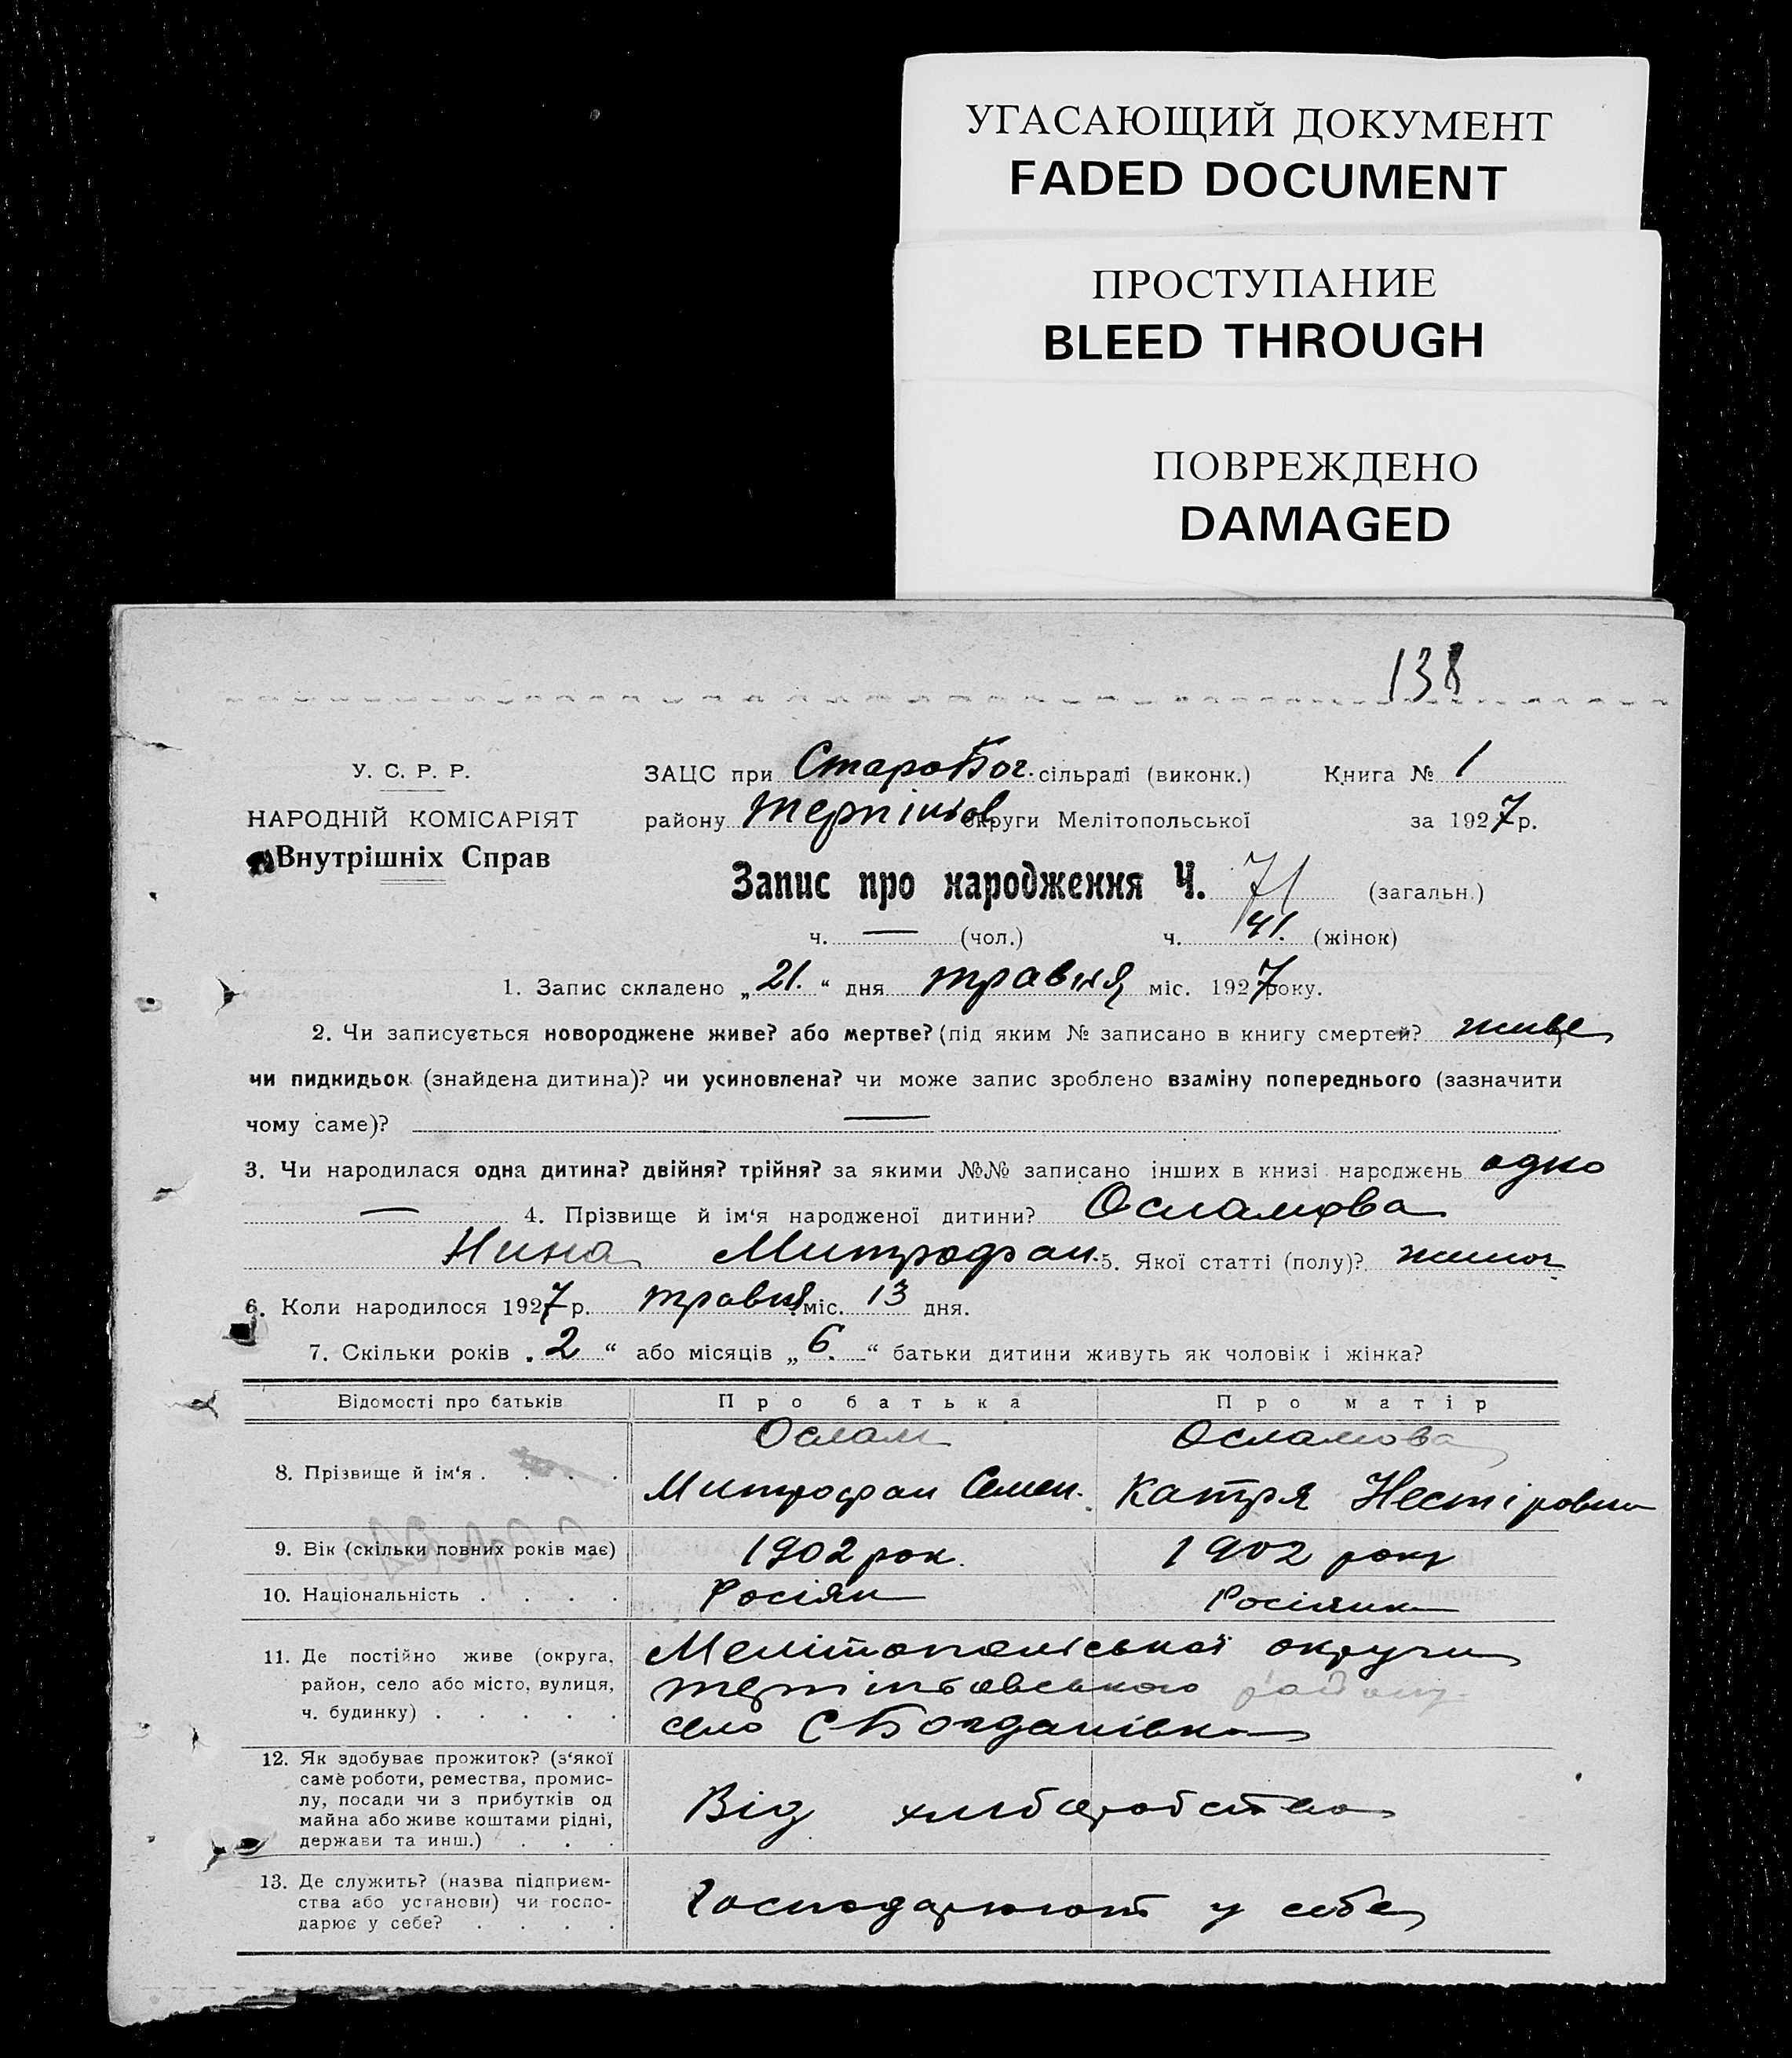 УГАСАЮЩИЙ ДОКУМЕНТ
FADED DOCUMENT
ПРОСТУПАНИЕ
BLEED THROUGH
ПОВРЕЖДЕНО
DAMAGED
138
У. С. Р. Р.
НАРОДНІЙ КОМІСАРІЯТ
Внутрішніх Справ
ЗАЦС при СтароБог. сільраді (виконк.) Книга № 1
району Терпіньов округи Мелітопольської за 1927 р.
Запис про народження Ч. 71 (загальн.)
ч. — (чол.) ч. 41. (жінок)
1. Запис складено „21." дня травня міс. 1927 року.
2. Чи записується новороджене живе? або мертве? (під яким № записано в книгу смертей? живе
чи пидкидьок (знайдена дитина)? чи усиновлена? чи може запис зроблено взаміну попереднього (зазначити
чому саме)? —
3. Чи народилася одна дитина? двійня? трійня? за якими №№ записано інших в книзі народжень одно
— 4. Прізвище й ім'я народженої дитини? Осламова
Нина Митрофан. 5. Якої статті (полу)? жиноч
6. Коли народилося 1927 р. травня міс. 13 дня.
7. Скільки років „2" або місяців „6." батьки дитини живуть як чоловік і жінка?
Відомості про батьків Про батька Про матір
8. Прізвище й ім'я . . . .
Ослам
Митрофан Семен.
Осламова
Катря Нестіровна
9. Вік (скільки повних років має) 1902 рок. 1902 року
10. Національність . . . . Росіян Росіянка
11. Де постійно живе (округа,
район, село або місто, вулиця,
ч. будинку) . . . . .
Мелітопольської округи
терпіньовського району
село СБогданівка
12. Як здобуває прожиток? (з'якої
саме роботи, ремества, промис-
лу, посади чи з прибутків од
майна або живе коштами рідні,
держави та инш.) . . .
Від хлиборобства
13. Де служить? (назва підприєм-
ства або установи) чи госпо-
дарює у себе? . . . .
Господарюють у себе